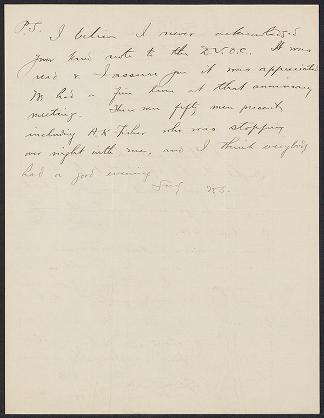 P.S. I believe I never acknowledged
your kind note to the D.V.O.C. It was
read & I assure you it was appreciated
We had a fine time at that anniversary
meeting. There were fifty men present,
including A K Fisher who was stopping
over night with me, and I think everybody
had a good evening
W.S.